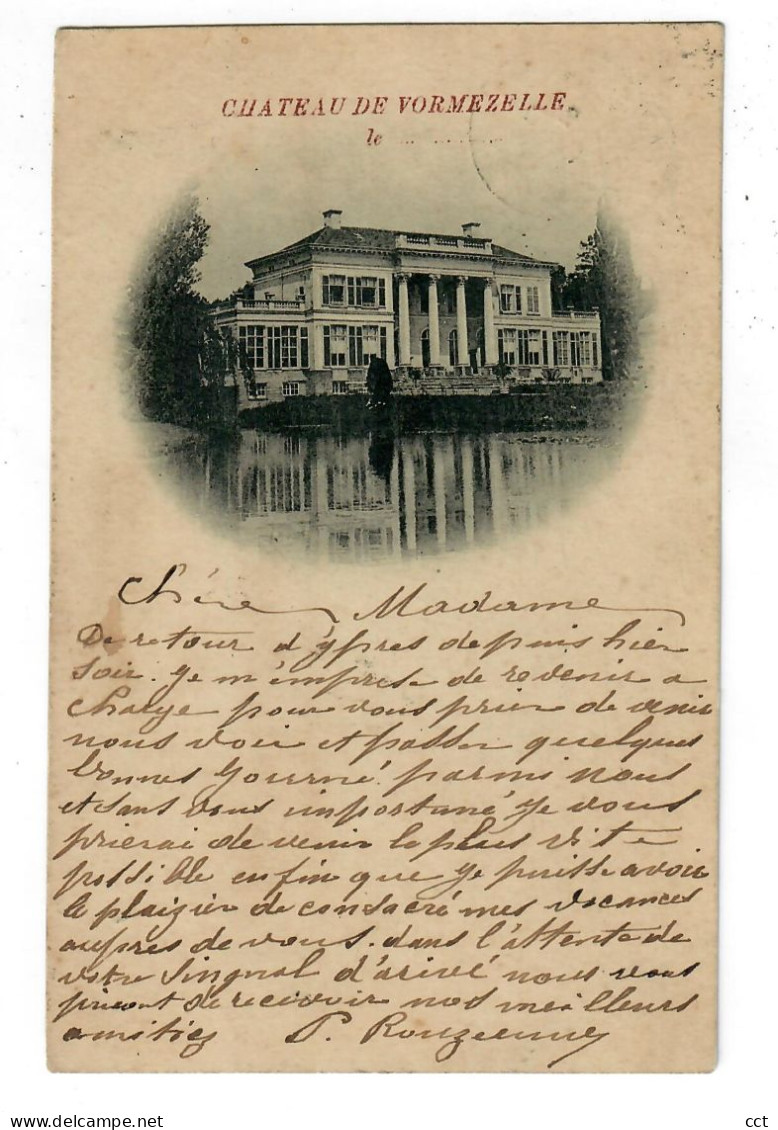 CHATEAU DE VORMEZELLE
le ... ... ... ...
Chère Madame
De retour d'ypres depuis hier
soir. Je m'imprese de revenir a
charge pour vous prier de venir
nous voir et passer quelques
bonnes Journé. parmi nous
et sans vous importuné Je vous
prierai de venir le plus vite
possible enfin que Je puisse avoir
le plaizier de consacré mes vacances
aupres de vous. dans l'attente de
votre Singnal d'arivé nous vous
priont de recevoir nos meilleurs
amitiés P.
www.delcampe.net
cct